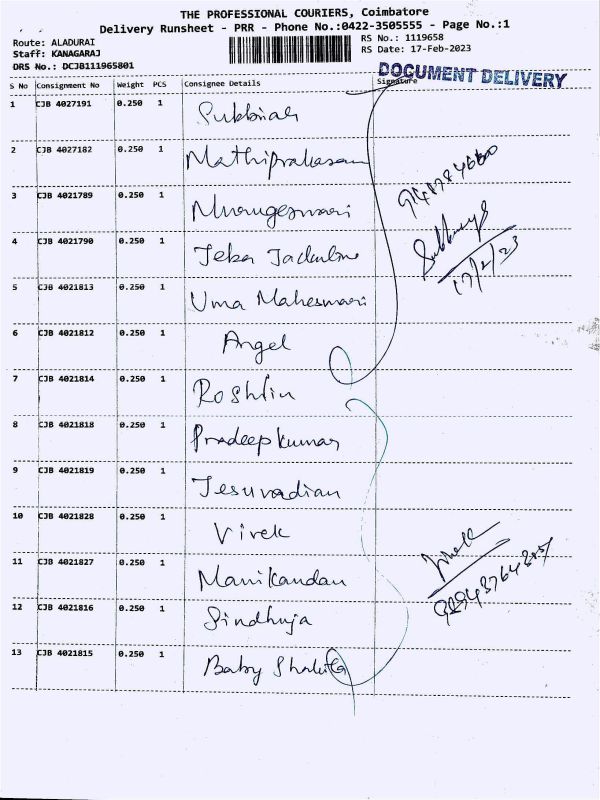 THE PROFESSIONAL COURIERS, Coimbatore
Delivery Runsheet - PRR - Phone No.:0422-3505555 - Page No.:1
Route: ALADURAI
Staff: KANAGARAJ
DRS No.: DCJB111965801
RS No.: 1119658
RS Date: 17-Feb-2023
DOCUMENT DELIVERY
S No Consignment No Weight PCS Consignee Details Signature
1 CJB 4027191 0.250 1 Subbiah
2 CJB 4027182 0.250 1 Mathiprakasam
3 CJB 4021789 0.250 1 Murugeswari
4 CJB 4021790 0.250 1 Jeba Jackuline
5 CJB 4021813 0.250 1 Uma Maheswari
6 CJB 4021812 0.250 1 Angel
7 CJB 4021814 0.250 1 Roshlin
8 CJB 4021818 0.250 1 Pradeepkumar
9 CJB 4021819 0.250 1 Jesuvadian
10 CJB 4021828 0.250 1 Vivek
11 CJB 4021827 0.250 1 Manikandan
12 CJB 4021816 0.250 1 Sindhuja
13 CJB 4021815 0.250 1 Baby
17/2/23